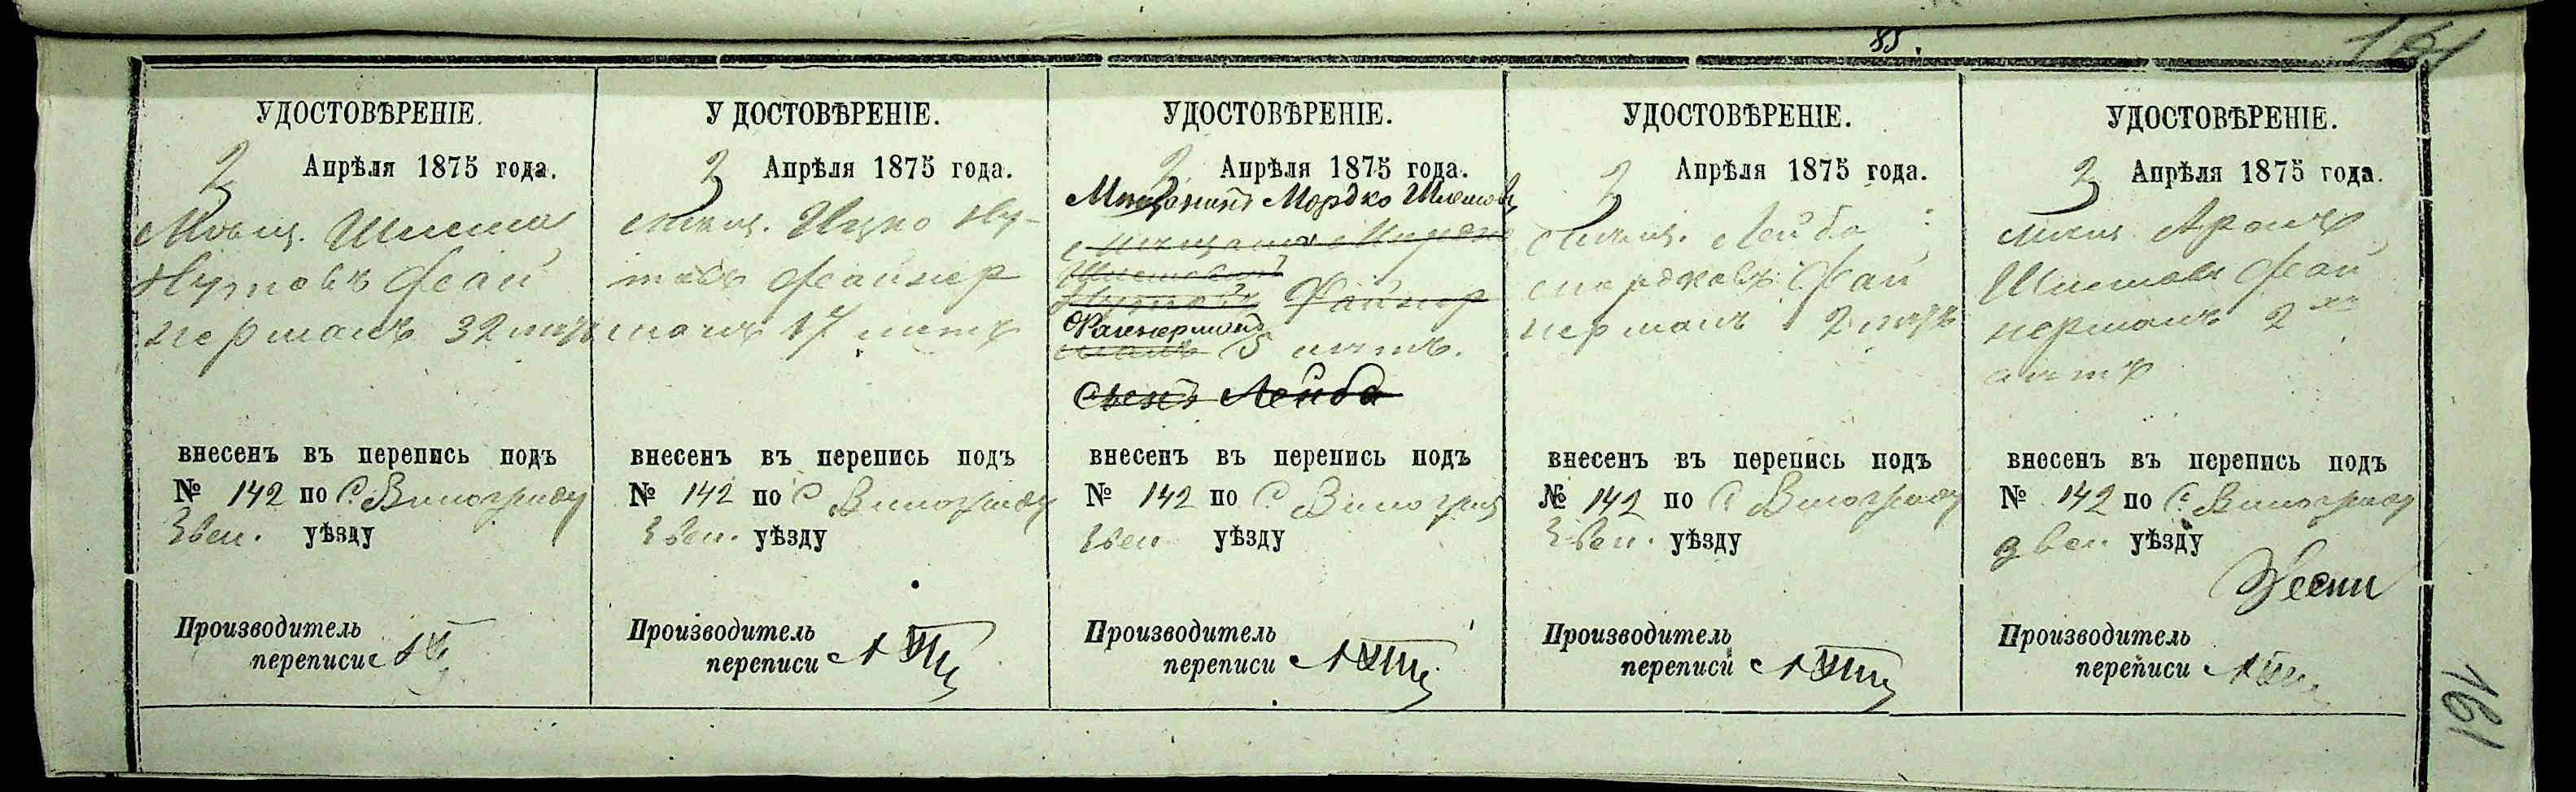 85.
УДОСТОВѢРЕНІЕ.
2 Апрѣля 1875 года.
Мѣщ. Шлема
Нутовъ Фай
нерманъ 32 лѣтъ
внесенъ въ перепись подъ
№ 142 по С. Винограду
Звен. уѣзду
Производитель
переписи
УДОСТОВѢРЕНІЕ.
2 Апрѣля 1875 года.
Мѣщ. Ицко Ну-
товъ Файнер
манъ 17 лѣтъ
внесенъ въ перепись подъ
№ 142 по С Винограду
Звен. уѣзду
Производитель
переписи
УДОСТОВѢРЕНІЕ.
2 Апрѣля 1875 года.
Мѣщанинъ Мордко Шлемовъ
Нутовъ Файнер
Файнерманъ
манъ 5 лѣтъ.
Лейба
внесенъ въ перепись подъ
№ 142 по С. Виногра
Звен уѣзду
Производитель
переписи
УДОСТОВѢРЕНІЕ.
2 Апрѣля 1875 года.
Мѣщ. Лейба
Мордковъ Фай
нерманъ 2 лѣтъ
внесенъ въ перепись подъ
№ 142 по С Винограду
Звен. уѣзду
Производитель
переписи
УДОСТОВѢРЕНІЕ.
2 Апрѣля 1875 года.
Мѣщ. Аронъ
Шлемовъ Фай
нерманъ 2хъ
лѣтъ
внесенъ въ перепись подъ
№ 142 по С. Винограду
Звен. уѣзду
Производитель
переписи
161